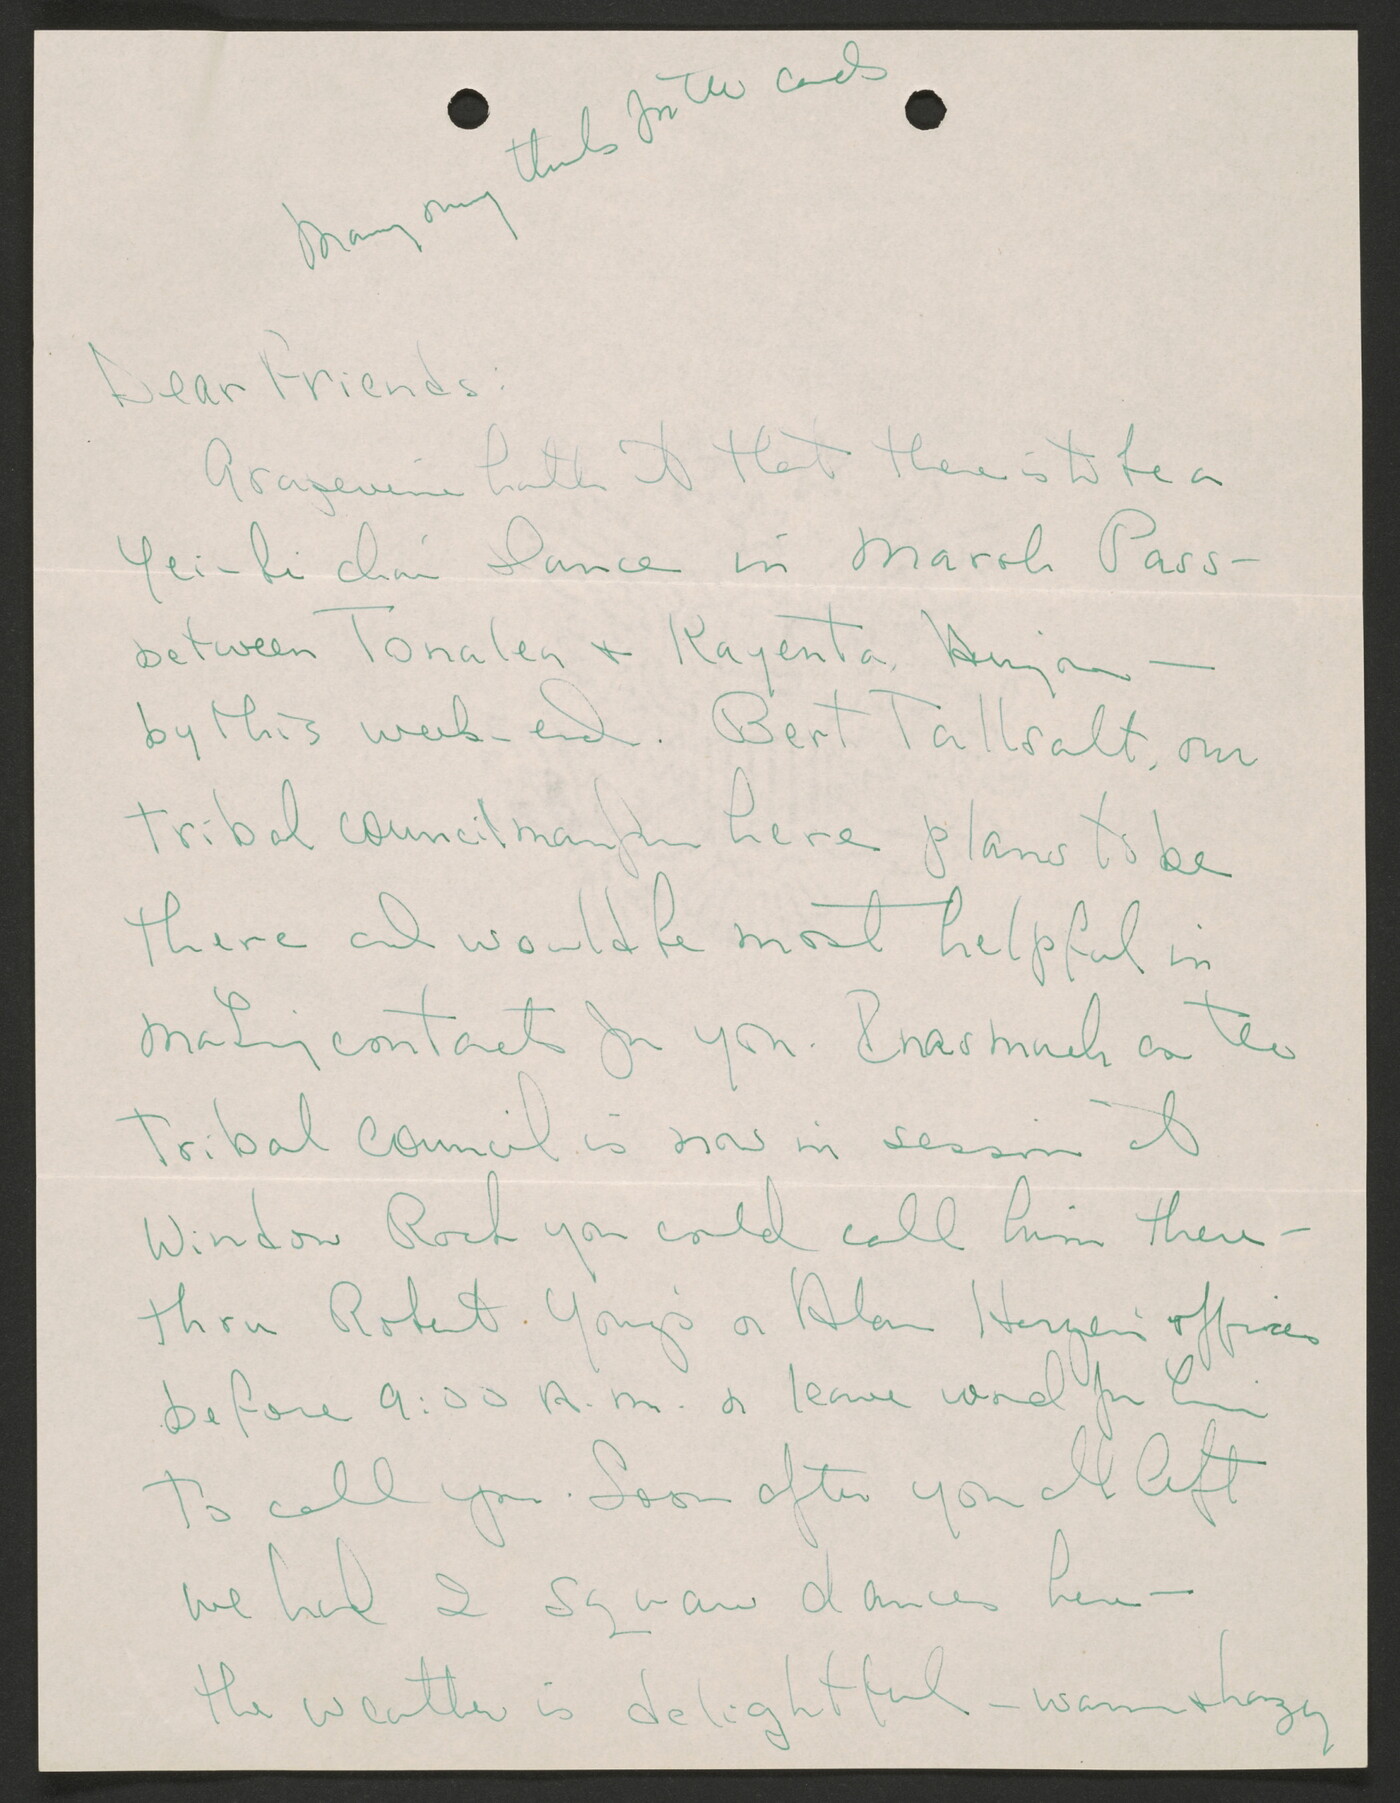 Many many thanks for the cards
Dear Friends:
Grapevine hath it that there is to be a
Yei-bi chai dance in Marsh Pass-
between Tonalea & Kayenta,
by this week-end. Bert Tallsalt, our
tribal councilman from here plans to be
there and would be most helpful in
making contacts for you. Inasmuch as the
tribal council is now in session at
Window Rock you could call him there-
thru Robert Young's or Alan offices
before 9:00 A.M. or leave word for him
to call you. Soon after you all left
we had 2 squaw dances here-
the weather is delightful - warm & hazy